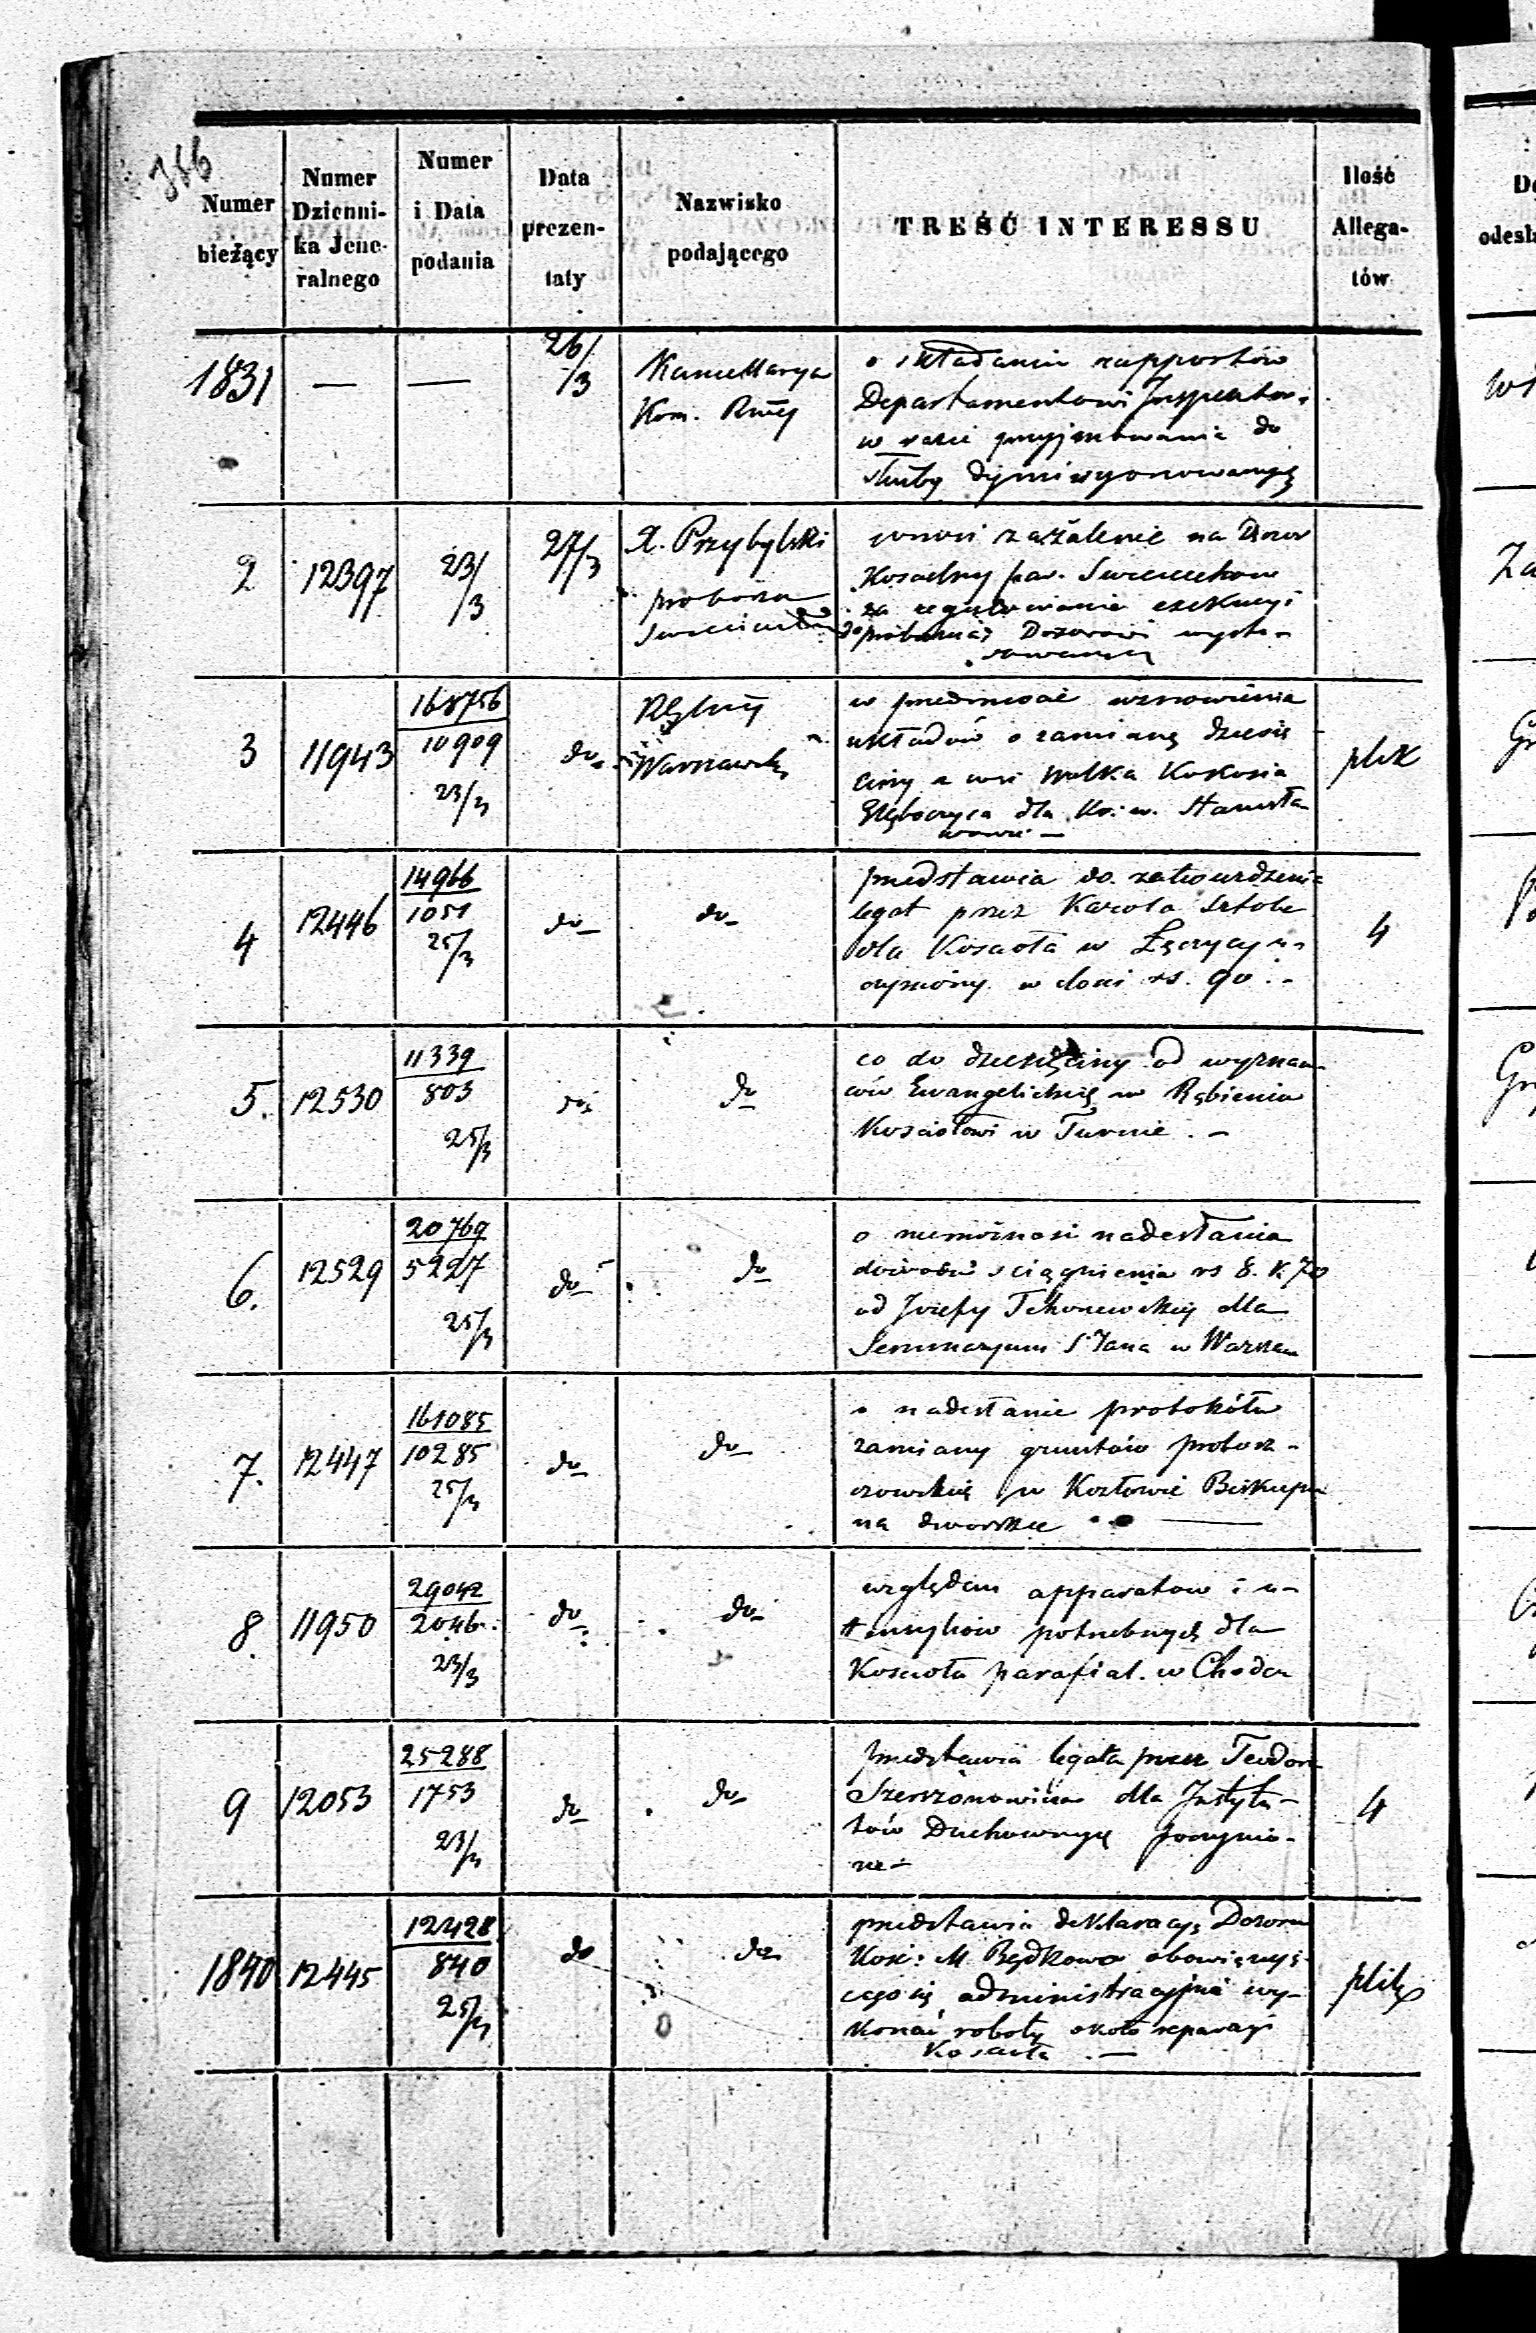 356
Numer bieżący
Numer Dzienni-ka Jene-ralnego
Numer i Data podania
Data prezen-taty
Nazwisko podającego
TREŚĆ INTERESSU
Ilość Allega-tów
1831 — — 26/3 Kancellarya o składaniu rapportów
Kom. Rząwej Departamentowi Inspektor.
w razie przyjmowania do
służby dymissyonowanych
2 12397 23/3 27/3 X. Przybylski wnosi zażalenie na Dozor
proboszcz Kościelny par.
za exekucyi
Dozorowi
3 11943 168756 / 10909 23/3 do w przedmiocie wznowienia
Warszawski układów o zamianę dziesię
ciny z wsi Wolka Kokosia plik
dla Ko: w. Stanisła
wowie —
4 12446 14966 / 1051 25/3 do do przedstawia do zatwierdzenia
legat przez Karola
dla Kościoła w Łęczycy u- 4
czyniony w ilości rs. 90 . -
5. 12530 11339 / 803 25/3 do do co do dziesięciny od wyznaw
ców Ewangelickich w Rąbieniu
Kościołowi w Turnie . —
6. 12529 20769 / 5227 25/3 do do o niemożności nadesłania
dowodu ściągnienia rs 8. k. 70
od Józefy dla
Seminaryum S Jana w Warszaw
7. 12447 161085 / 10285 25/3 do do o nadesłanie protokółu
zamiany gruntów probosz-
czowskich w Kozłowie Biskupim
na dworskie
8. 11950 29042 / 2046 23/3 do do względem apparatow i u-
tensyliow potrzebnych dla
Kościoła parafial. w Chodcu
9 12053 25288 / 1753 23/3 do do przedstawia legata przez Teodora
dla Instytu- 4
tów Duchownych poczynio-
ne —
1840 12445 12428 / 840 25/3 do do przedstawia deklaracyę Dozoru
Kość: M. Będkowa obowiązują
cego się administracyjnie wy- plik
konać roboty około reparacyi
Kościoła . —